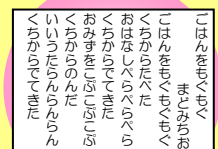 ごはんをもぐもぐ
まとみちお
ごはんをもぐもぐもぐ
くちからたべた
おはなしぺらぺらぺら
くちからでてきた
おみずをごぶごぶごぶ
くちからのんだ
いいうたらんらんらん
くちからでてきた